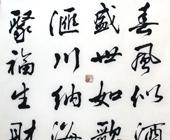 春風似酒
盛世如歌
滙川納海
聚福生財